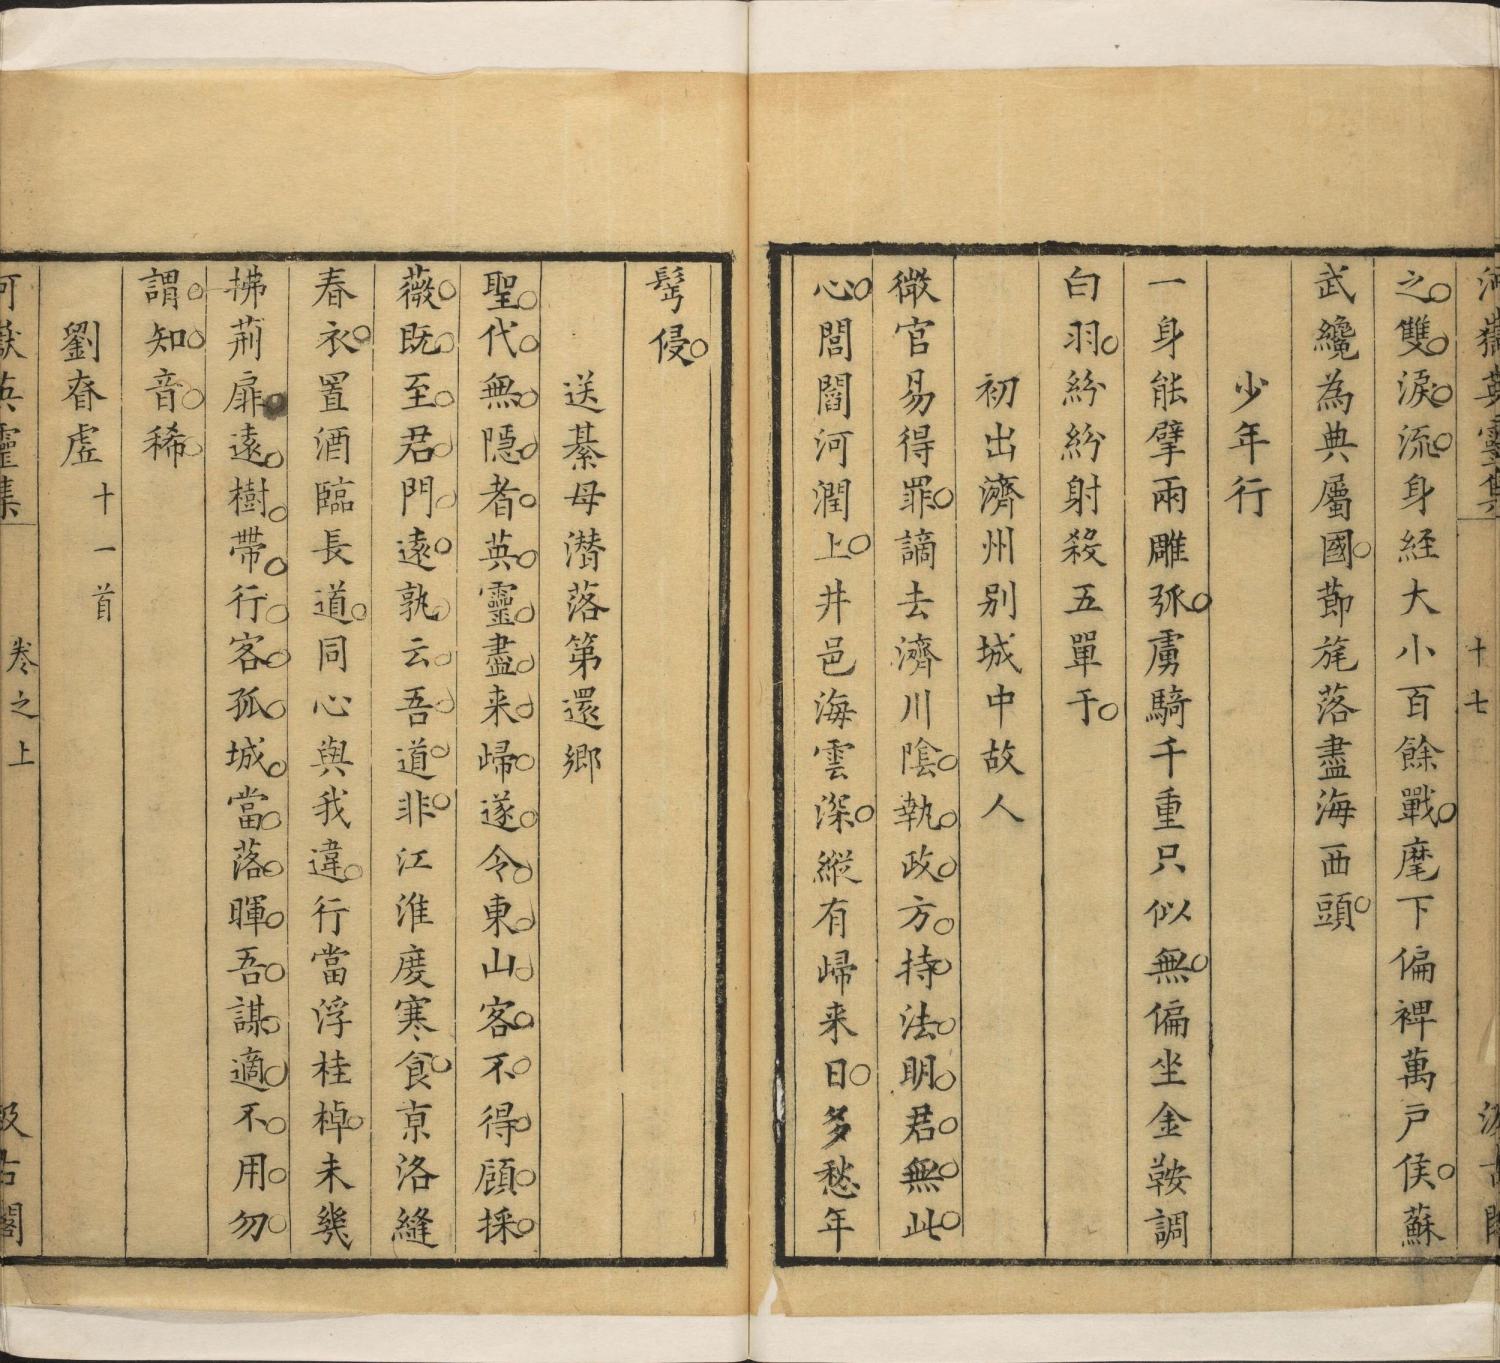 河嶽英靈集 十七 汲古閣
之雙淚流身經大小百餘戰麾下偏裨萬戶侯蘇
武纔為典屬國節旄落盡海西頭
少年行
一身能擘兩雕弧虜騎千重只似無偏坐金鞍調
白羽紛紛射殺五單于
初出濟州別城中故人
微官易得罪謫去濟川陰執政方持法明君無此
心閭閻河潤上井邑海雲深縱有歸来日多愁年
髩侵
送綦母潜落第還鄉
聖代無隱者英靈盡来歸遂令東山客不得顧採
薇既至君門遠孰云吾道非江淮度寒食京洛縫
春衣置酒臨長道同心與我違行當浮桂棹未幾
拂荊扉遠樹帶行客孤城當落暉吾謀適不用勿
謂知音稀
劉眘虛十一首
河嶽英靈集 卷之上 汲古閣